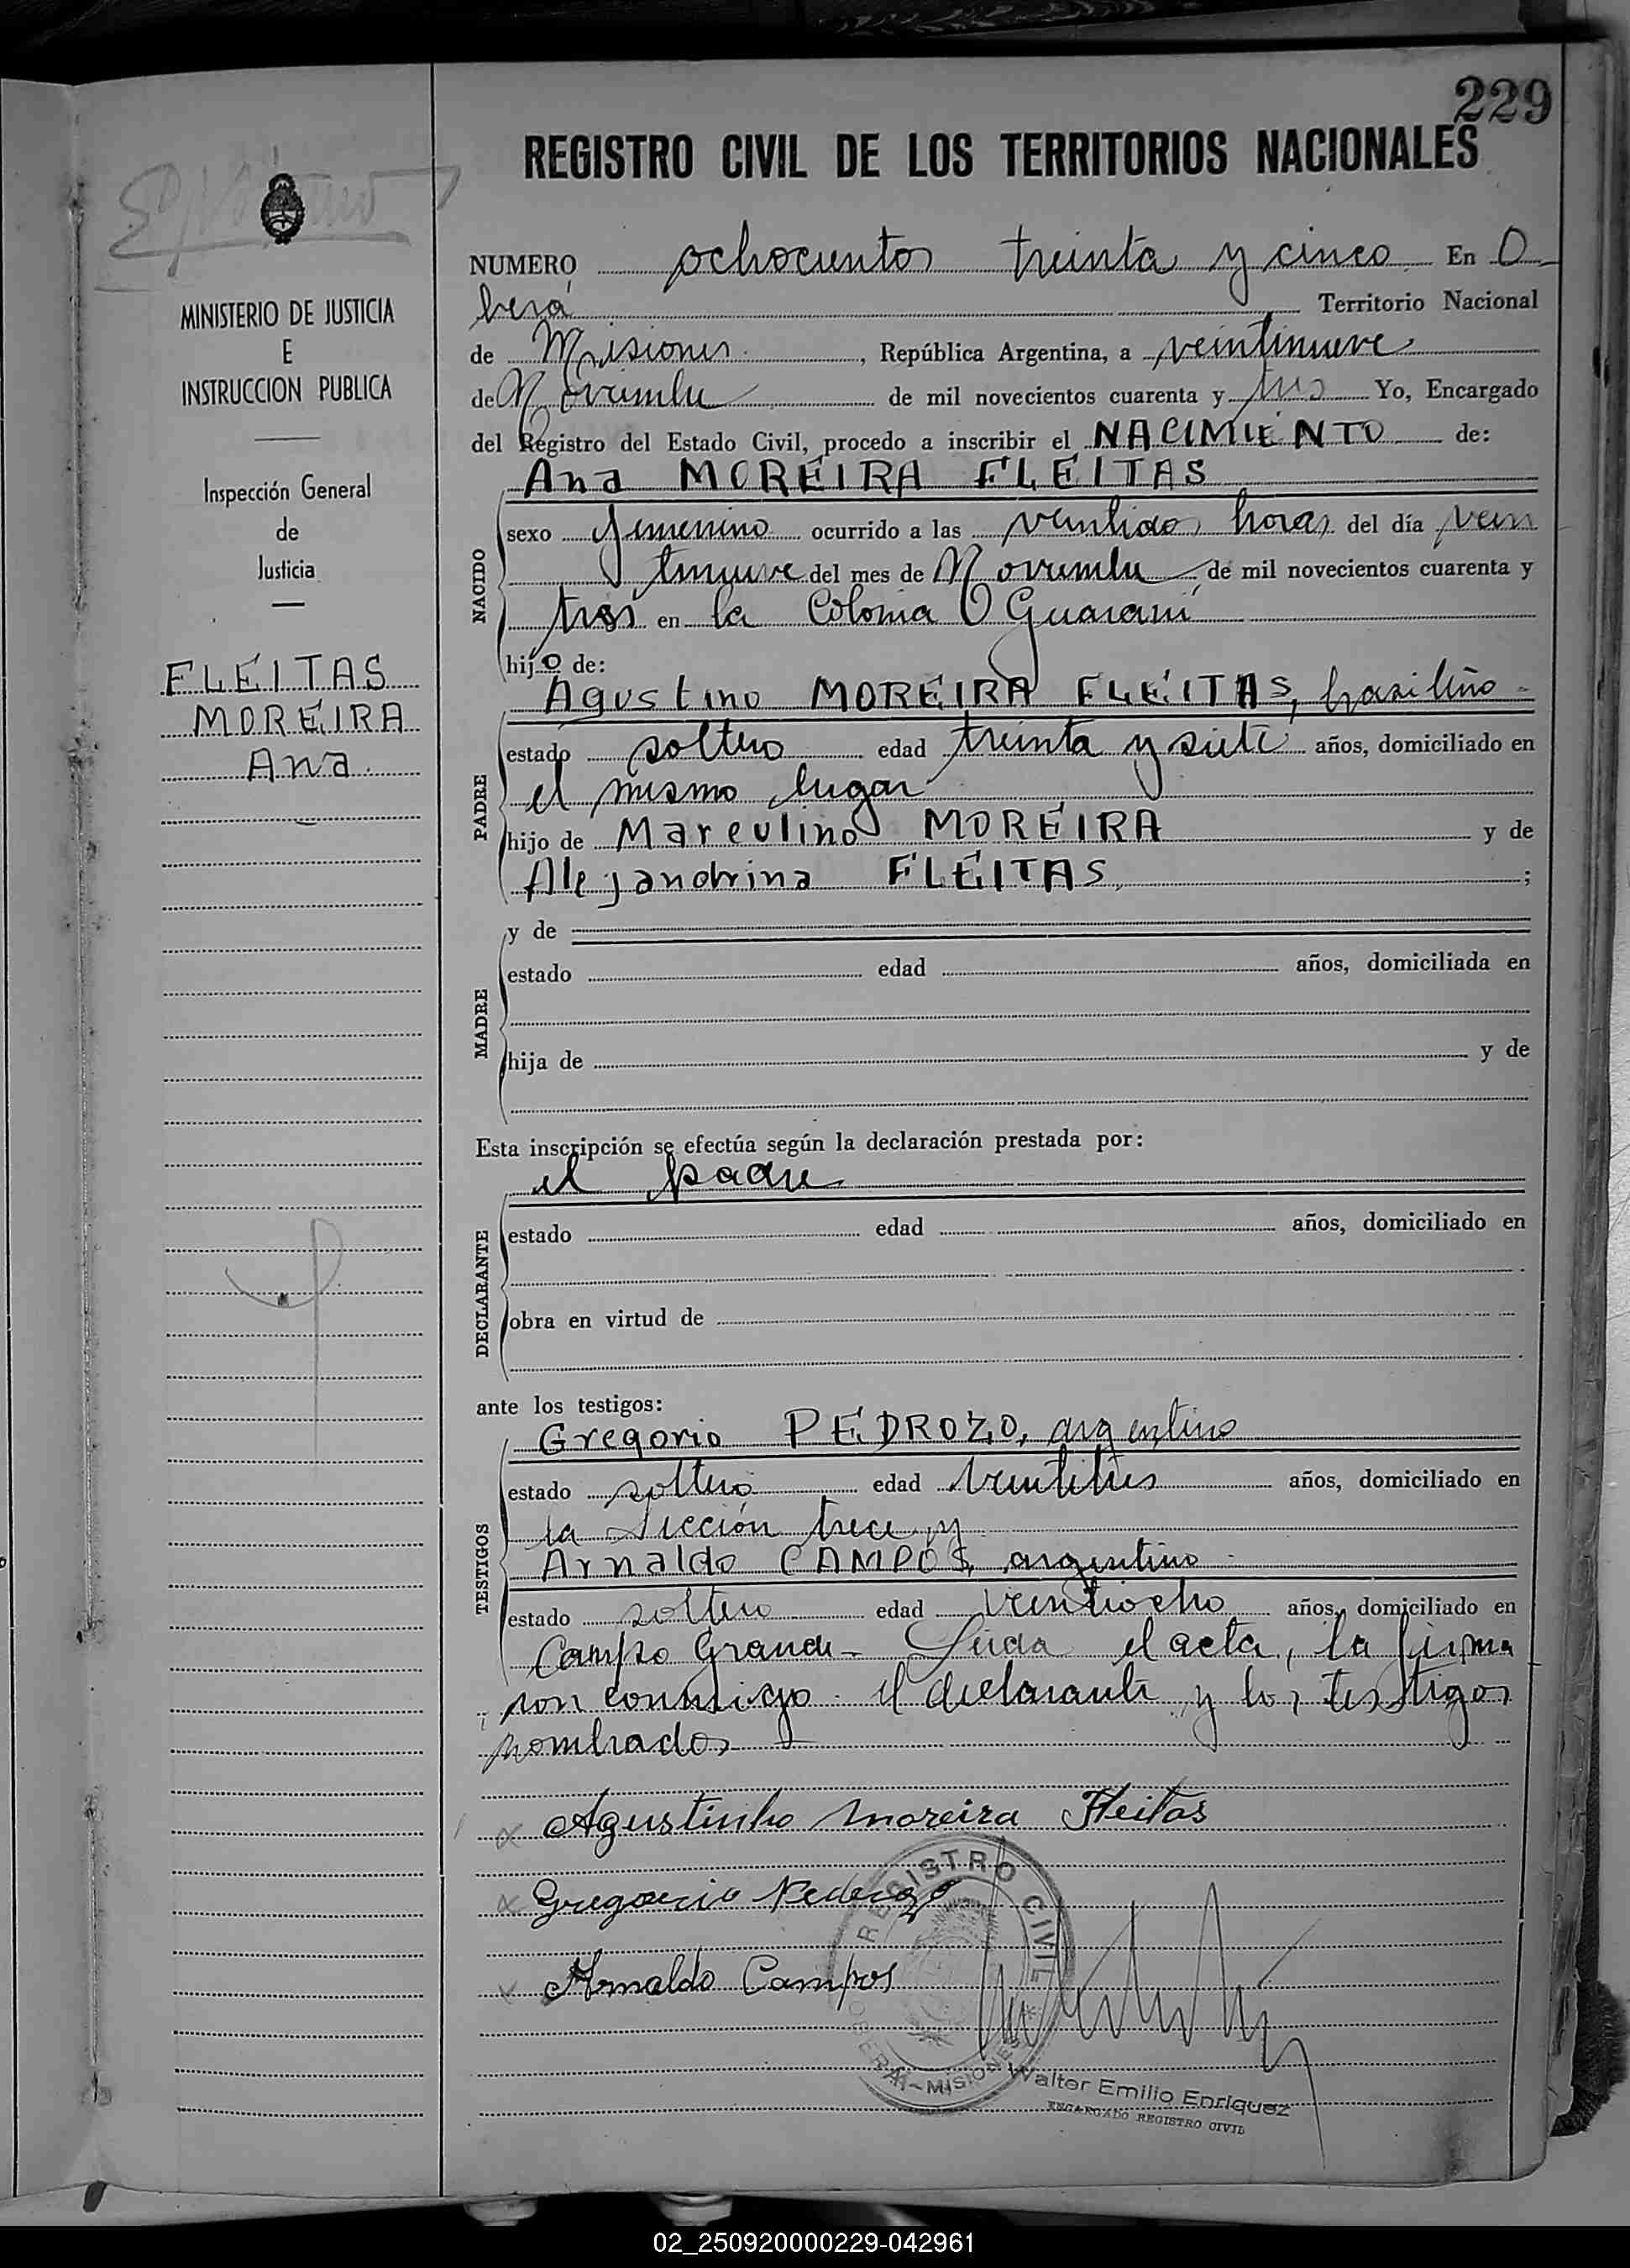 229
REGISTRO CIVIL DE LOS TERRITORIOS NACIONALES
MINISTERIO DE JUSTICIA
E
INSTRUCCION PUBLICA
Inspección General
de
Justicia
FLEITAS
MOREIRA
Ana
NUMERO ochocientos treinta y cinco En O
berá Territorio Nacional
de Misiones, República Argentina, a veintinueve
de Noviembre de mil novecientos cuarenta y tres Yo, Encargado
del Registro del Estado Civil, procedo a inscribir el NACIMIENTO de:
Ana MOREIRA FLEITAS
NACIDO
sexo femenino ocurrido a las veintidos horas del día vein
tinueve del mes de Noviembre de mil novecientos cuarenta y
tres en la Colonia Guaraní
hijo de:
Agustino MOREIRA FLEITAS, brasileño
PADRE
estado soltero edad treinta y siete años, domiciliado en
el mismo lugar
hijo de Marculino MOREIRA y de
Alejandrina FLEITAS ;
MADRE
y de
estado edad años, domiciliada en
hija de y de
Esta inscripción se efectúa según la declaración prestada por:
el padre
DECLARANTE
estado edad años, domiciliado en
obra en virtud de
ante los testigos:
TESTIGOS
Gregorio PEDROZO, argentino
estado soltero edad veintitres años, domiciliado en
la Sección trece y
Arnaldo CAMPOS, argentino
estado soltero edad veintiocho años, domiciliado en
Campo Grande - Leida el acta, la firma
ron conmigo el declarante y los testigos
nombrados
Agustinho Moreira Fleitas
Gregorio Pedrozo
Arnaldo Campos
REGISTRO CIVIL
OBERA - MISIONES
Walter Emilio Enriquez
ENCARGADO REGISTRO CIVIL
02_250920000229-042961